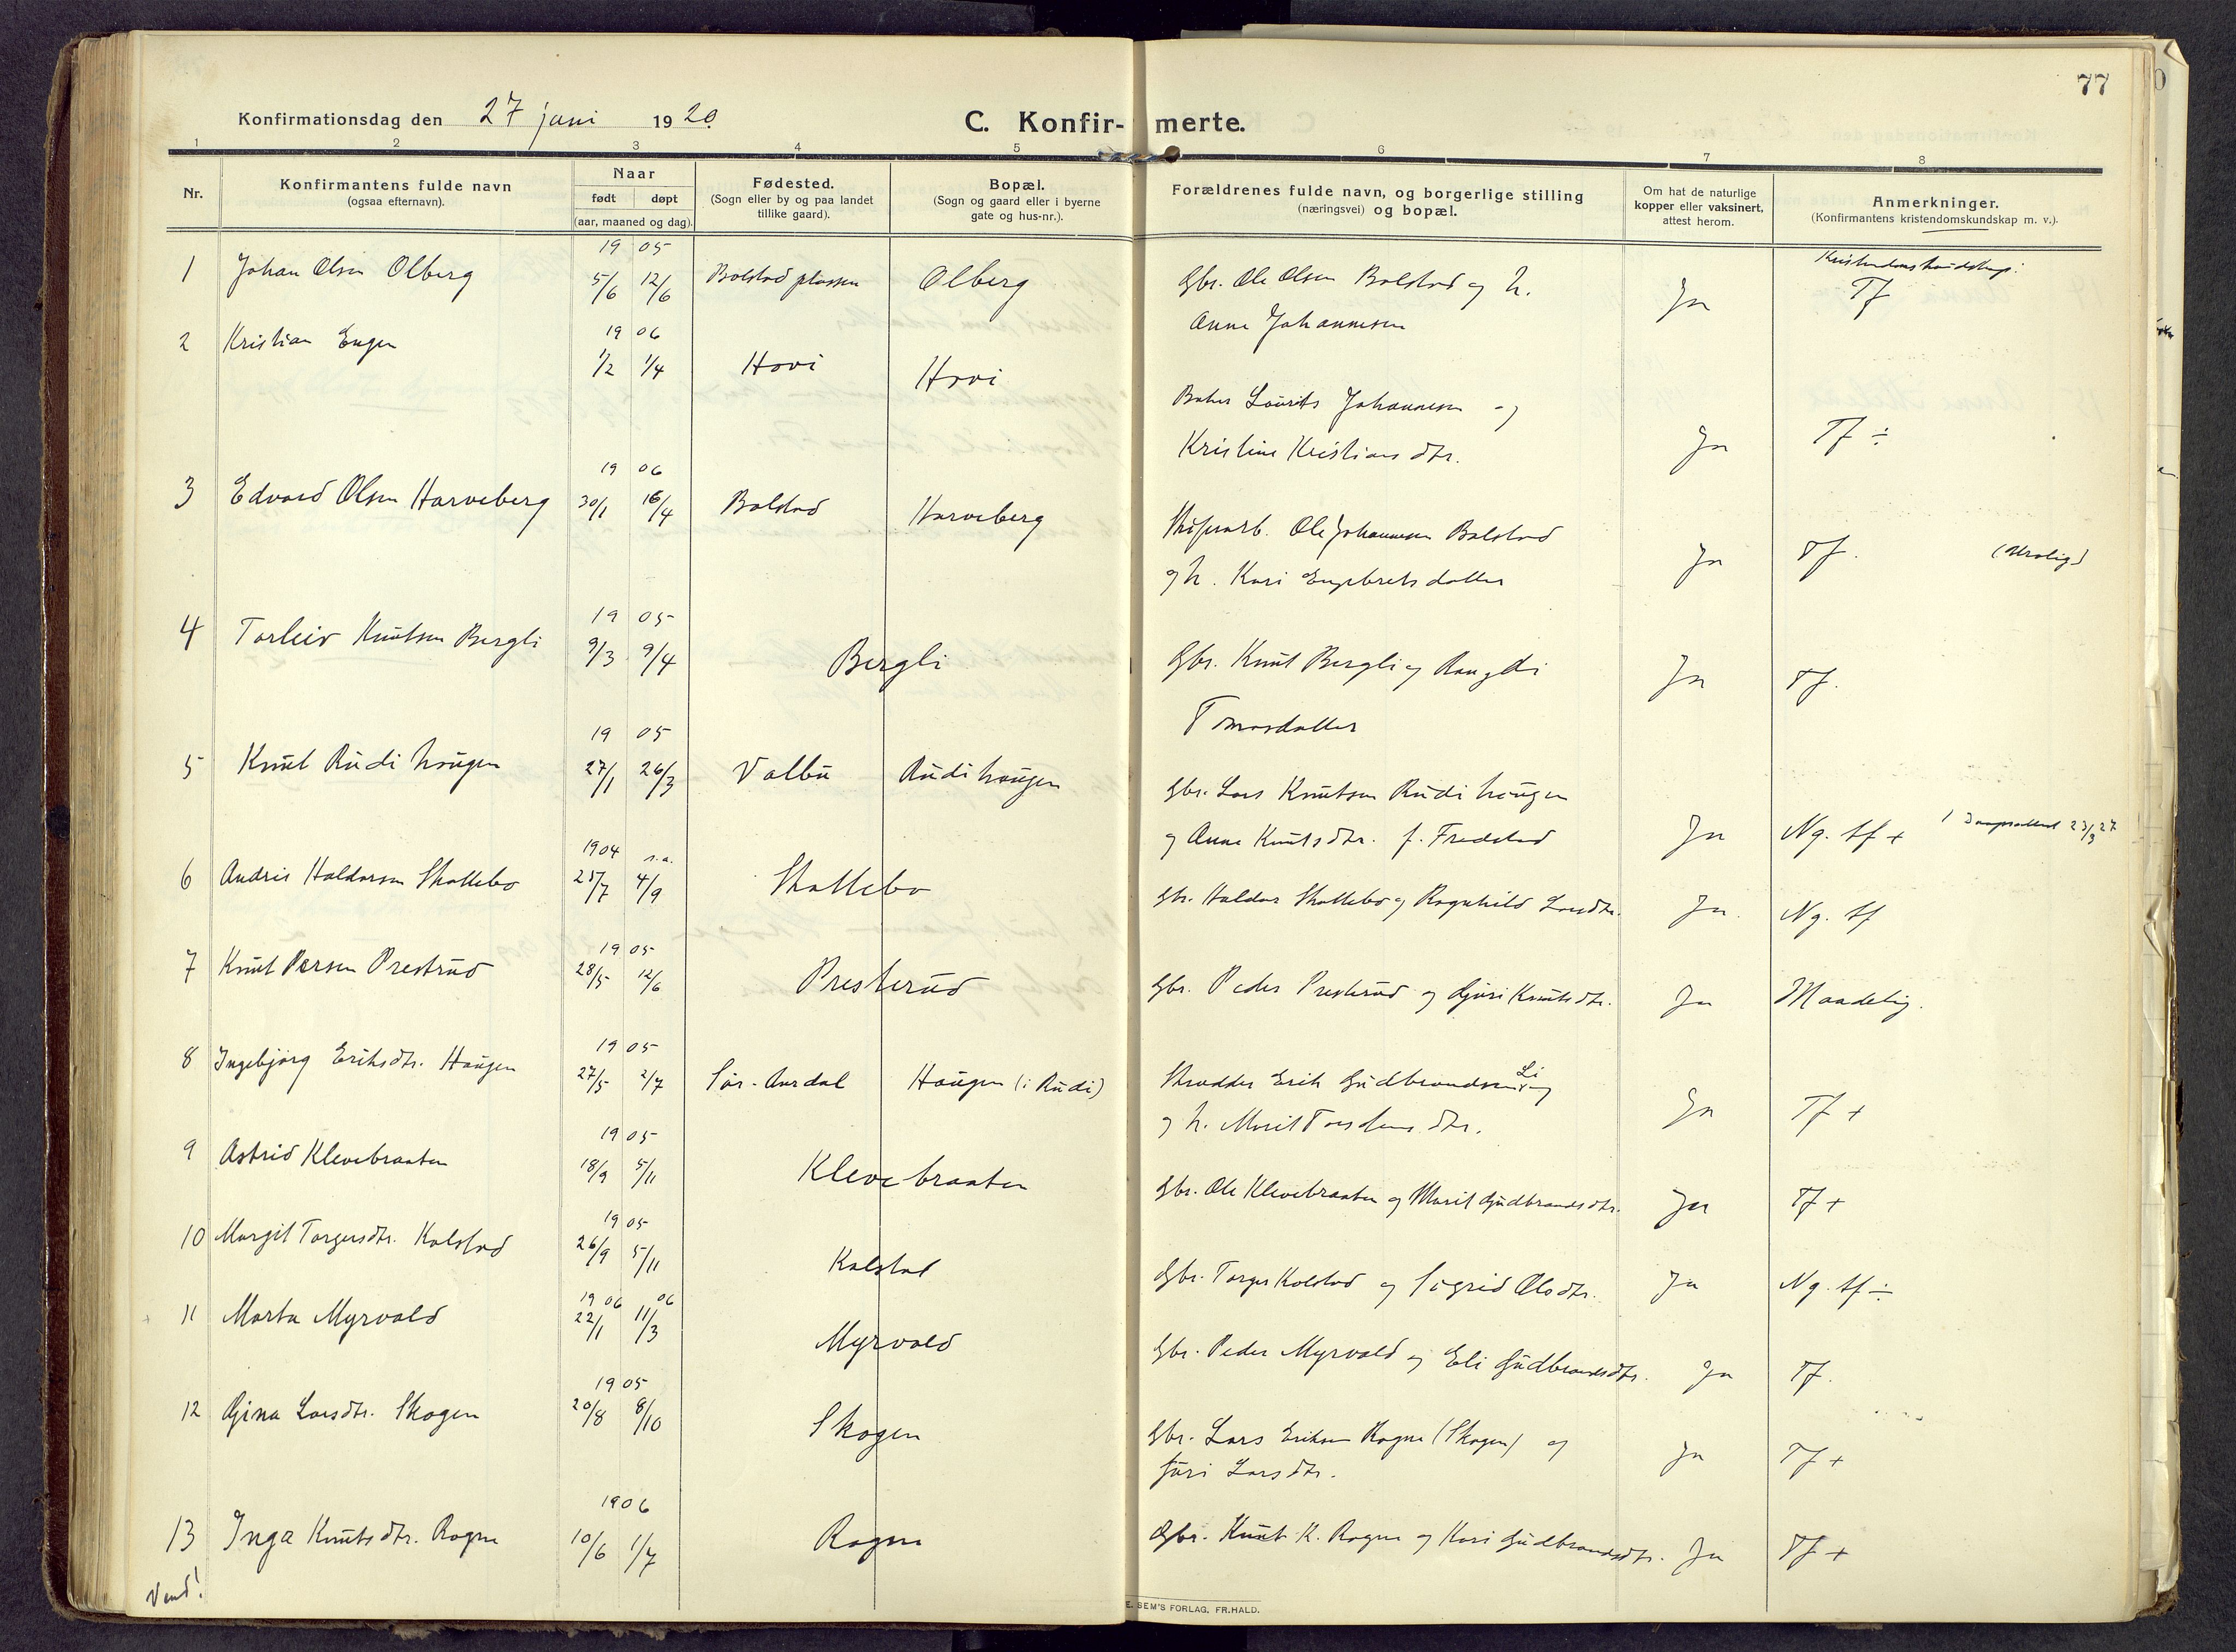 77
Konfirmationsdag den 27 juni 1920.
C. Konfir-merte.
1 2 3 4 5 6 7 8
Nr.
Konfirmantens fulde navn
(ogsaa efternavn).
Naar
født døpt
(aar, maaned og dag).
Fødested.
(Sogn eller by og paa landet
tillike gaard).
Bopæl.
(Sogn og gaard eller i byerne
gate og hus-nr.).
Forældrenes fulde navn, og borgerlige stilling
(næringsvei) og bopæl.
Om hat de naturlige
kopper eller vaksinert,
attest herom.
Anmerkninger.
(Konfirmantens kristendomskundskap m. v.).
Kristendomskundskap:
19 05
1 Johan Olsen Olberg 5/6 12/6 Bolstadplassen Olberg Gbr. Ole Olsen Bolstad og h. Ja Tf
Anne Johannesen
19 06
2 Kristian Engen 1/2 1/4 Hovi Hovi
Laurits Johannesen og
Kristine Kristiansdtr. Ja Tf ÷
19 06
3 Edvard Olsen Harveberg 30/1 16/4 Bolstad Harveberg
Ole Johannesen Bolstad
og h. Kari Engebretsdatter Ja Tf. (Urolig)
19 05
4 Torleiv Knutsen Bergli 9/3 9/4 Bergli Gbr. Knut Bergli og Rangdi Ja Tf.
Tomasdatter
19 05
5 Knut Rudihaugen 27/1 26/3 Valbu Rudihaugen
Gbr. Lars Knutsen Rudihaugen
og Anne Knutsdtr. f. Fredstad Ja Ng. tf + 23/3 27
1904 s.a.
6 Andris Haldorsen Skattebo 25/7 4/9 Skattebo Gbr. Haldor Skattebo og Ragnhild Larsdtr. Ja. Ng. tf
19 05
7 Knut Persen Prestrud 28/5 12/6 Presterud Gbr. Peder Presterud og Guri Knutsdtr. Ja Maadelig.
19 05
8 Ingebjørg Eriksdtr. Haugen 27/5 2/7 Sør-Aurdal Haugen (i Rudi)
Skrædder Erik Gudbrandsen Li og
og h. Marit Torstensdtr. Ja Tf +
19 05
9 Astrid Klevebraaten 18/9 5/11 Klevebraaten Gbr. Ole Klevebraaten og Marit Gudbrandsdtr. Ja Tf +
19 05
10 Margit Torgersdtr. Kolstad 26/9 5/11 Kolstad Gbr. Torger Kolstad og Sigrid Olsdtr. Ja Ng. tf ÷
19 06 06
11 Marta Myrvold 22/1 11/3 Myrvold Gbr. Peder Myrvold og Eli Gudbrandsdtr. Ja Tf.
19 05
12 Gina Larsdtr. Skogen 20/8 8/10 Skogen Gbr. Lars Eriksen Rogne (Skogen) og Ja Tf +
Guri Larsdtr.
1906
13 Inga Knutsdtr. Rogne 10/6 1/7 Rogne Gbr. Knut K. Rogne og Kari Gudbrandsdtr. Ja Tf +
Vend!
E. SEM'S FORLAG, FR.HALD.